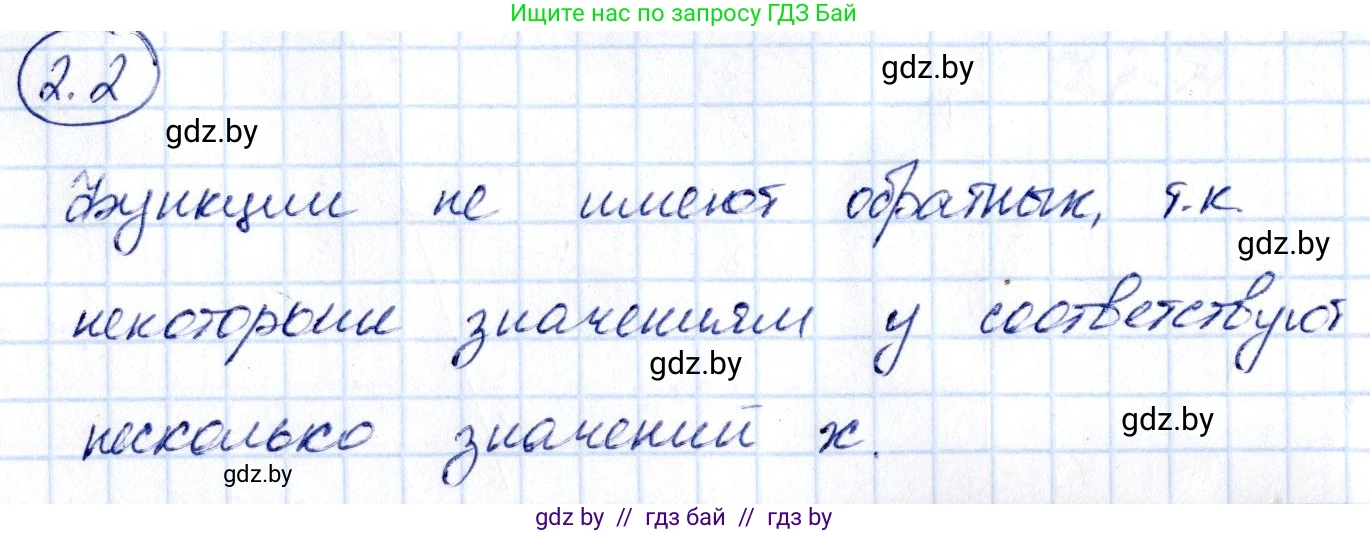 Ищите нас по запросу ГДЗ Бай
2.2
gdz.by
gdz.by
Функции не имеют обратных, т.к.
gdz.by
некоторым значениям у соответствуют
gdz.by
несколько значений х.
gdz.by
gdz.by
gdz by // гдз бай // гдз by